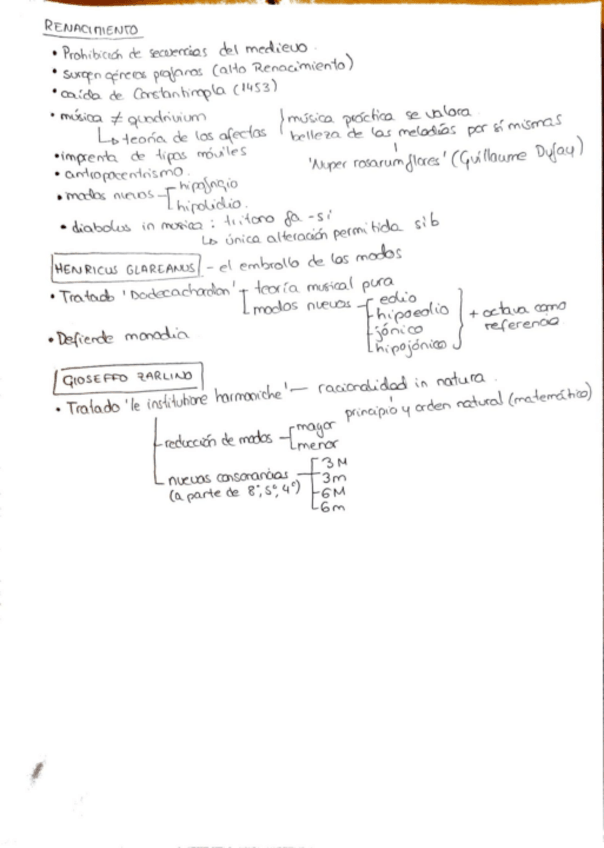 RENACIMIENTO
• Prohibición de secuencias del medievo.
• surgen géneros profanos (alto Renacimiento)
• caída de Constantinopla (1453)
• música ≠ quadrivium
↳ teoría de los afectos
música práctica se valora
belleza de las melodías por sí mismas
'Nuper rosarum flores' (Guillaume Dufay)
• imprenta de tipos móviles
• antropocentrismo
• modos nuevos
hipofrigio
hipolidio.
• diabolus in musica: tritono fa-si
↳ única alteración permitida sib
HENRICUS GLAREANUS - el embrollo de los modos
• Tratado 'Dodecachordon'
teoría musical pura
modos nuevos
eolio
hipoeolio
jónico
hipojónico
+ octava como
referencia
• Defiende monodia
GIOSEFFO ZARLINO
• Tratado 'le institutione harmoniche' — racionalidad in natura.
principio y orden natural (matemático)
reducción de modos
mayor
menor
nuevas consonancias
(a parte de 8ª, 5ª, 4ª)
3M
3m
6M
6m